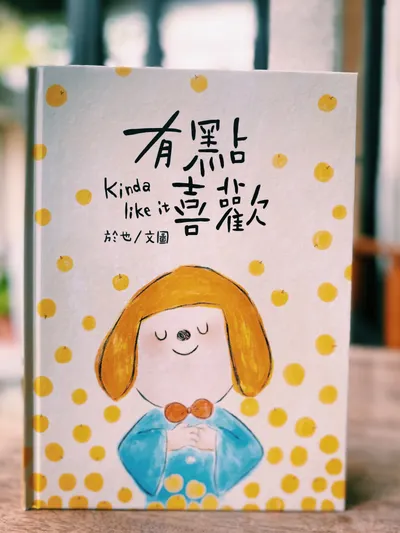 有點
Kinda
like it
喜歡
於也/文圖